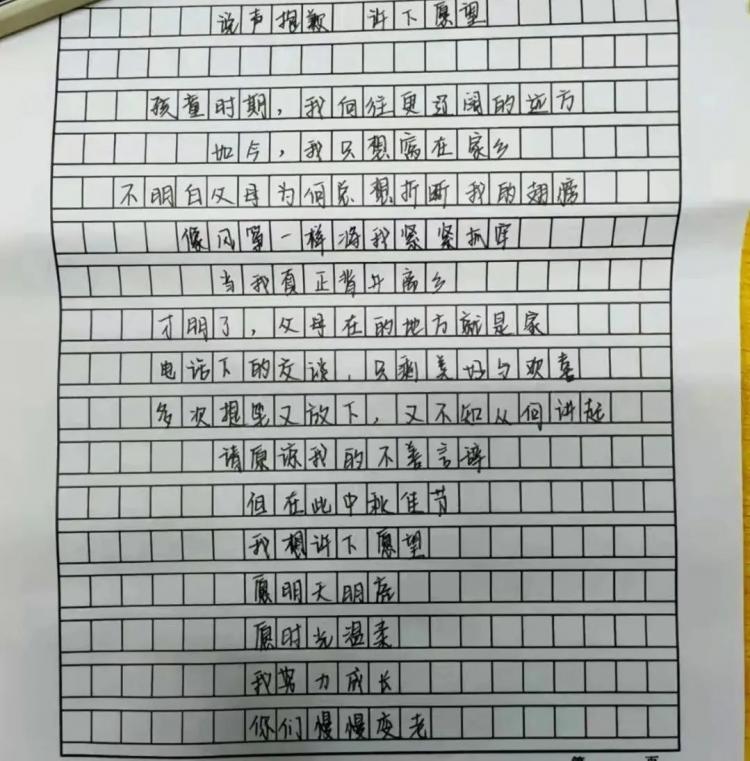 说声抱歉 许下愿望
孩童时期，我向往更辽阔的远方
如今，我只想窝在家乡
不明白父母为何总想折断我的翅膀
像风筝一样将我紧紧抓牢
当我真正背井离乡
才明了，父母在的地方就是家
电话下的交谈，只剩美好与欢喜
多次提笔又放下，又不知从何讲起
请原谅我的不善言辞
但在此中秋佳节
我想许下愿望
愿明天明亮
愿时光温柔
我努力成长
你们慢慢变老
第 页